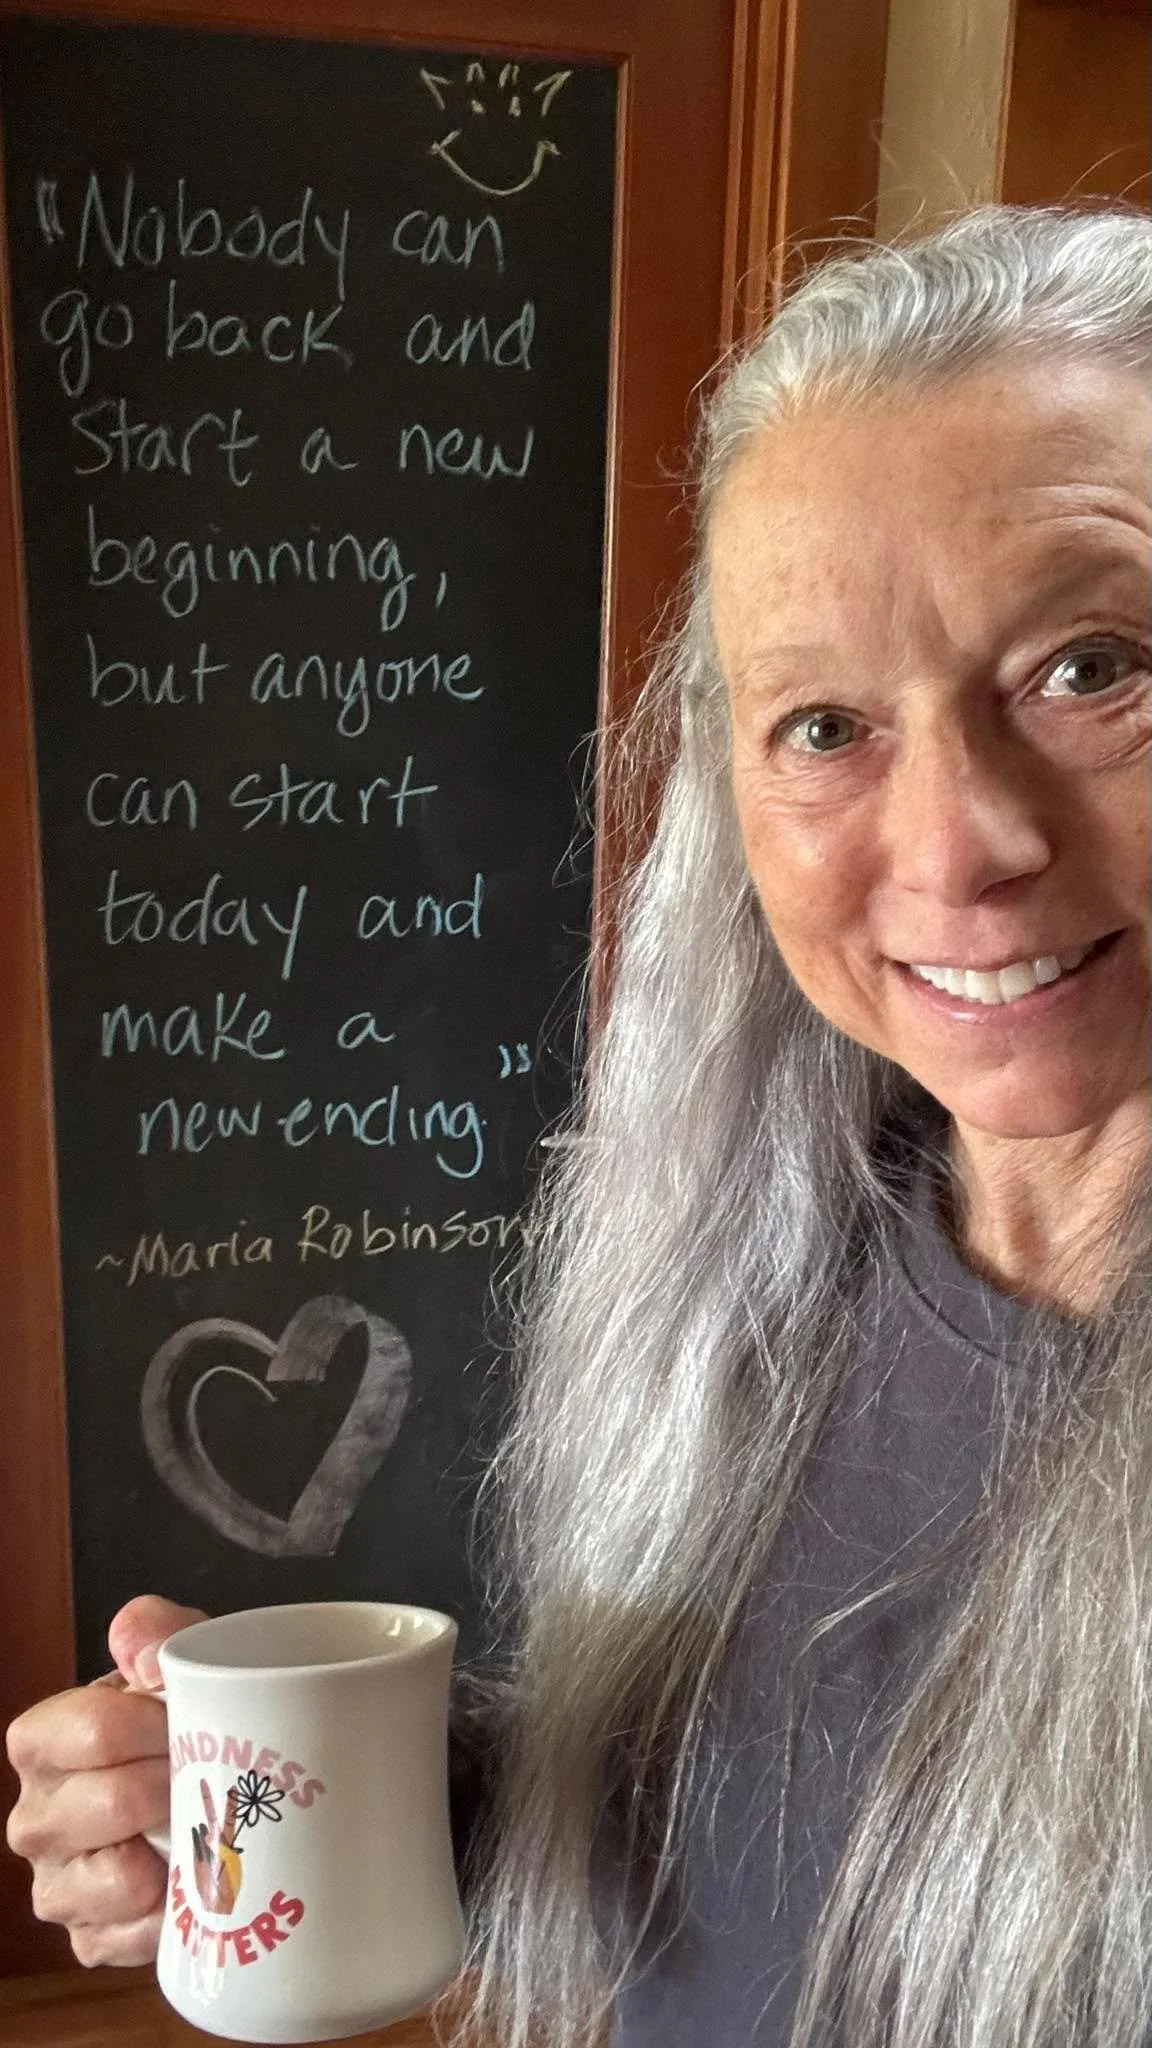 "Nobody can
go back and
start a new
beginning,
but anyone
can start
today and
make a
new ending."
~Maria Robinson
KINDNESS
MATTERS